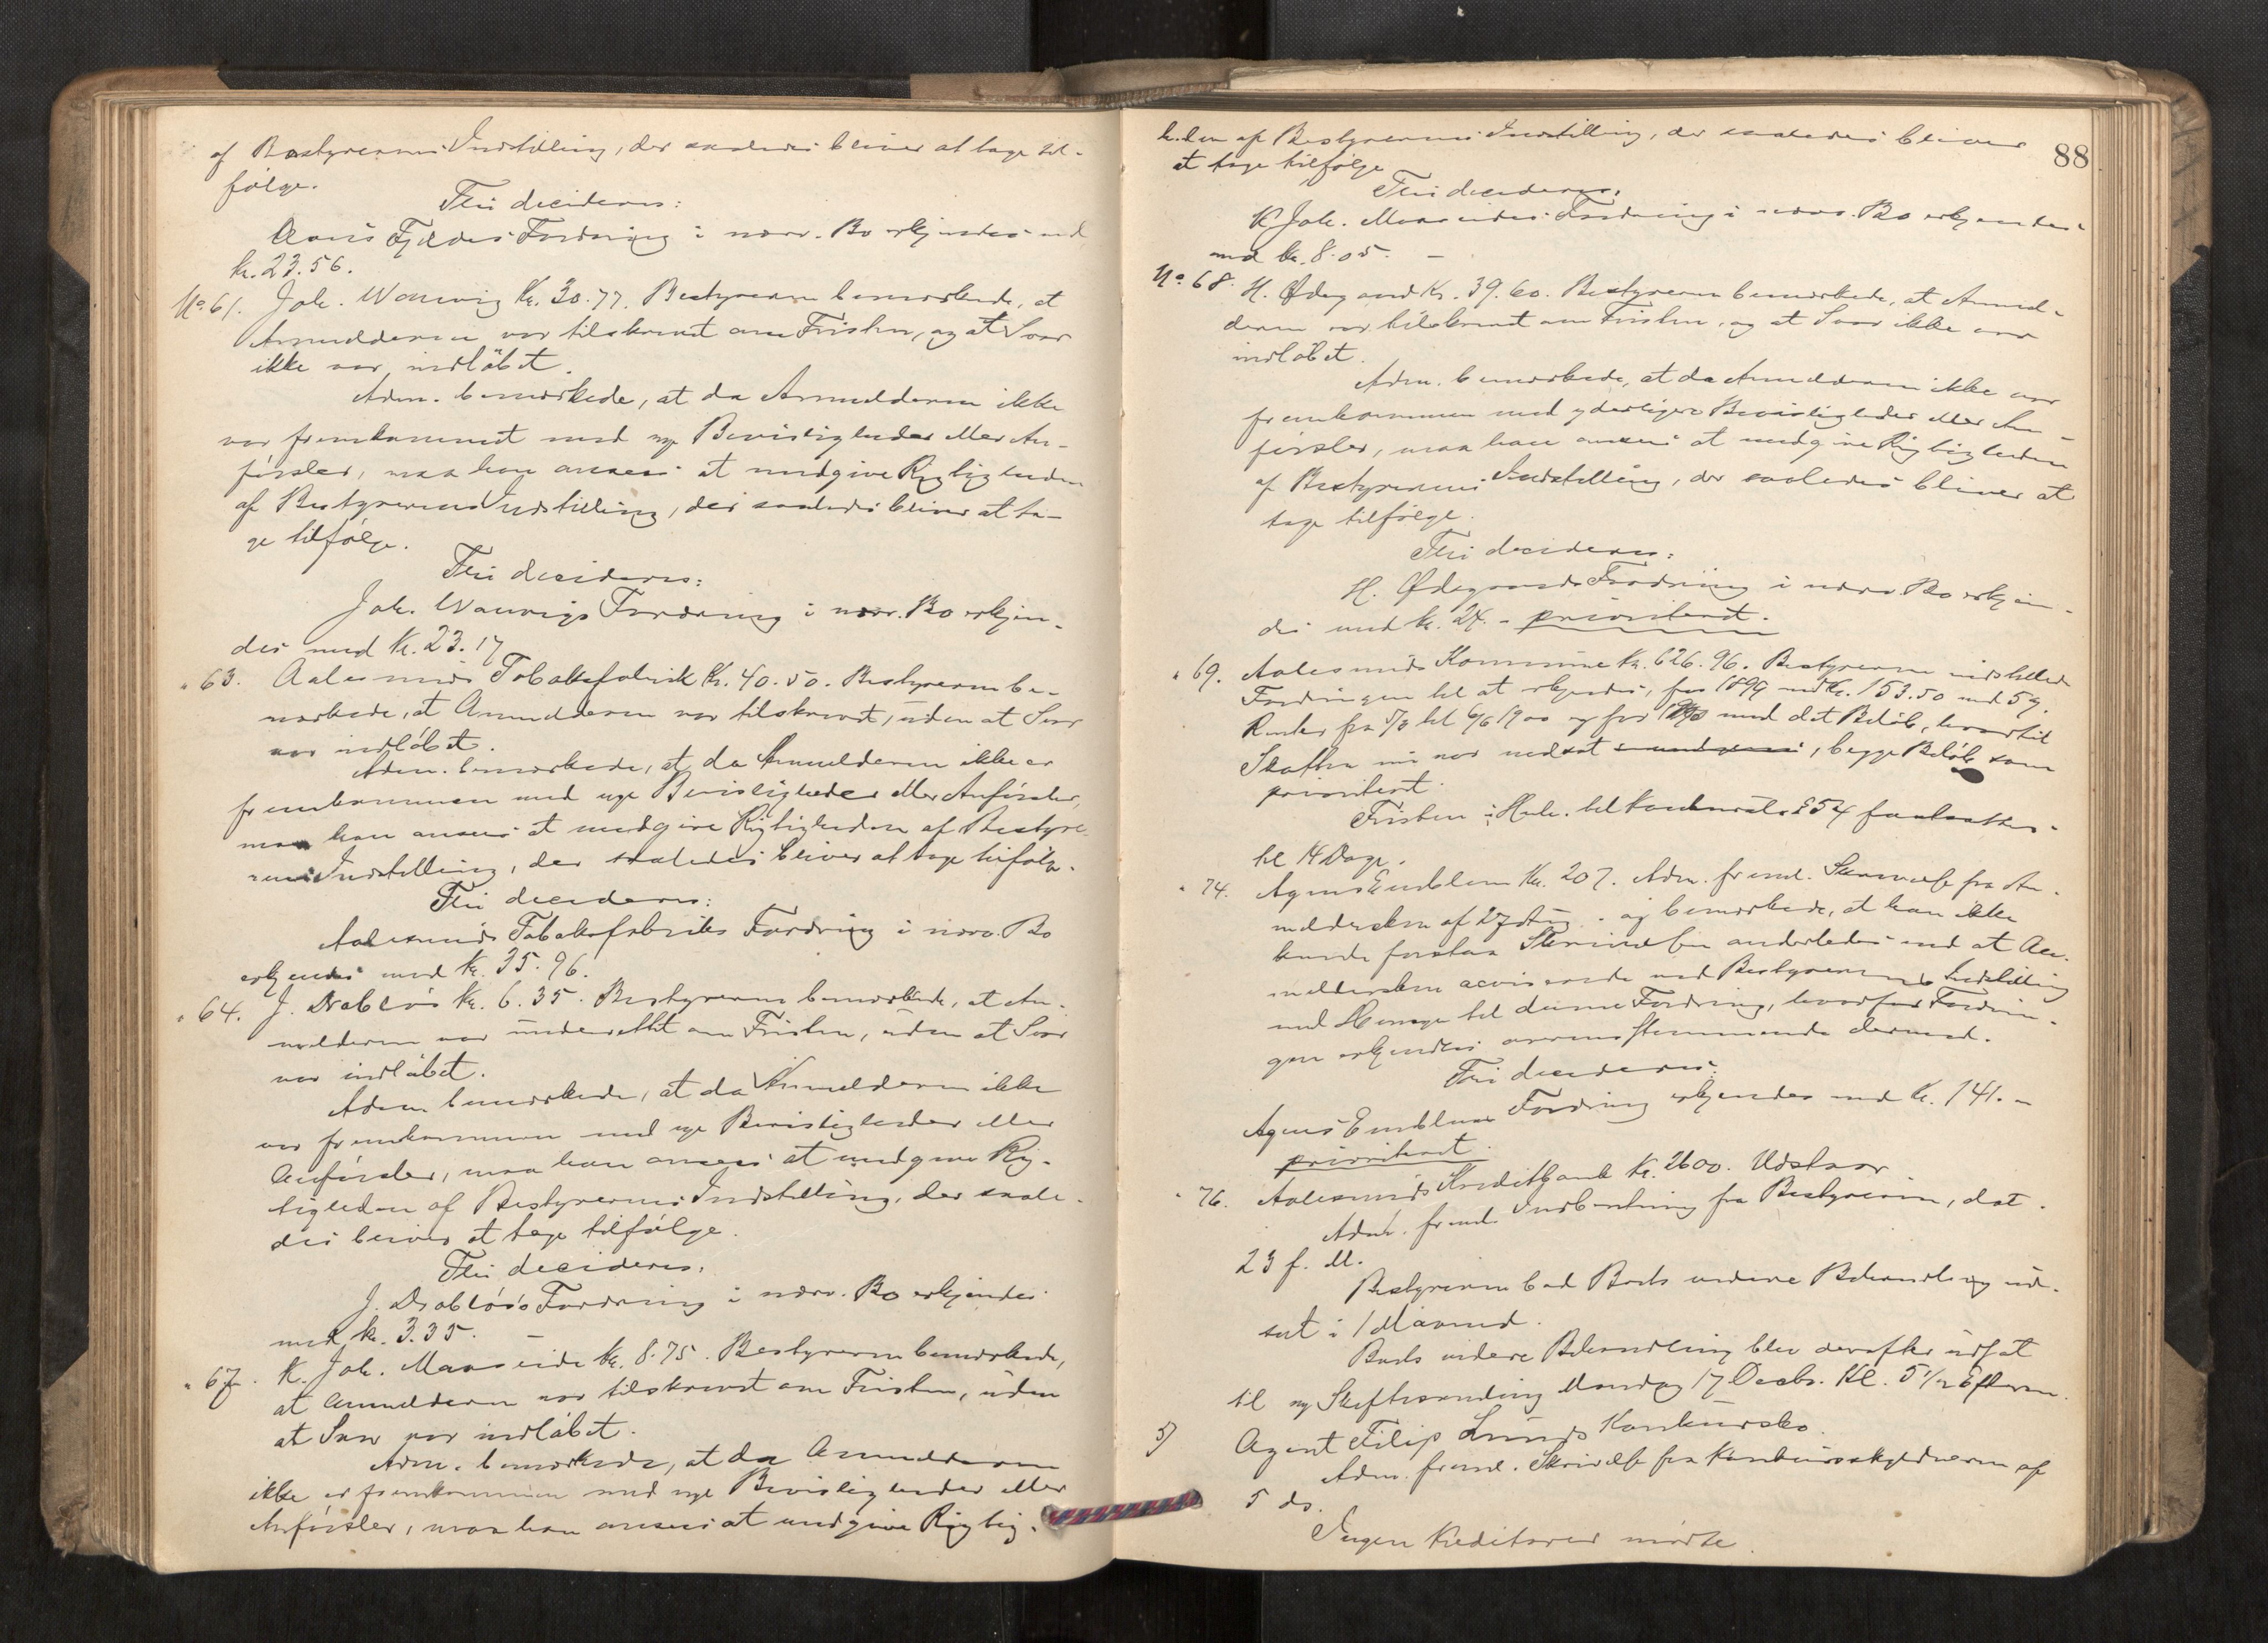 af Bestyrerens Indstilling, der saaledes bliver at tage til-
følge.
Thi decideres:
Fjeldes Fordring i nærv. Bo erkjendes med
kr. 23.56.
No 61. Joh. Kr. 30.77. Bestyreren bemærkede, at
Anmelderen var tilskrevet om Fristen, og at Svar
ikke var indløbet.
Adm. bemærkede, at da Anmelderen ikke
var fremkommet med nye Bevisligheder eller An-
førsler, maa han ansees at medgive Rigtigheden
af Bestyrerens Indstilling, der saaledes bliver at ta-
ge tilfølge.
Thi decideres:
Joh. Fordring i nærv. Bo erkjen-
des med Kr. 23.17
" 63. Aalesunds Tobaksfabrik Kr. 40.50. Bestyreren be-
mærkede, at Anmelderen var tilskrevet, uden at Svar
var indløbet.
Adm. bemærkede, at da Anmelderen ikke er
fremkommen med nye Bevisligheder eller Anførsler,
maa han ansees at medgive Rigtigheden af Bestyre-
rens Indstilling, der saaledes bliver at tage tilfølge.
Thi decideres:
Aalesunds Tobaksfabriks Fordring i nærv. Bo
erkjendes med Kr. 35.96.
" 64. J. Drabløs Kr. 6.35. Bestyreren bemærkede, at An-
melderen var underrettet om Fristen, uden at Svar
var indløbet.
Adm. bemærkede, at da Anmelderen ikke
var fremkommen med nye Bevisligheder eller
Anførsler, maa han ansees at medgive Rig-
tigheden af Bestyrerens Indstilling, der saale-
des bliver at tage tilfølge.
Thi decideres:
J. Drabløs's Fordring i nærv. Bo erkjendes
med kr. 3.35. –
" 67. K. Joh. Maaseide Kr. 8.75. Bestyreren bemærkede,
at Anmelderen var tilskrevet om Fristen, uden
at Svar var indløbet.
Adm. bemærkede, at da Anmelderen
ikke er fremkommen med nye Bevisligheder eller
Anførsler, maa han ansees at medgive Rigtig-
88
heden af Bestyrerens Indstilling, der saaledes bliver
at tage tilfølge
Thi decideres:
K. Joh. Maaseides Fordring i nærv. Bo erkjendes
med kr. 8.05. –
No 68. H. Ødegaard Kr. 39.60. Bestyreren bemærkede, at Anmel-
deren var tilskrevet om Fristen, og at Svar ikke var
indløbet.
Adm. bemærkede, at da Anmelderen ikke var
fremkommen med yderligere Bevisligheder eller An-
førsler, maa han ansees at medgive Rigtigheden
af Bestyrerens Indstilling, der saaledes bliver at
tage tilfølge.
Thi decideres:
H. Ødegaards Fordring i nærv. Bo erkjen-
des med kr. 24. - prioritert.
" 69. Aalesunds Kommune Kr. 626.96. Bestyreren indstillede
Fordringen til at erkjendes, for 1899 med Kr. 153.50 med 5%
Renter fra til 6/6 1900 og for med det Beløb, hvortil
Skatten nu var nedsat, begge Beløb som
prioritert.
Fristen i Henh. til Konkursl. § 54 fastsattes
til 14 Dage.
" 74. Agnes Emblem Kr. 207. Adm. freml. Skrivelse fra An-
meldersken af 27 Aug. og bemærkede, at han ikke
kunde forstaa Skrivelsen anderledes end at An-
meldersken med Bestyrerens Indstilling
med Hensyn til denne Fordring, hvorfor Fordrin-
gen erkjendtes overensstemmende dermed.
Thi decideres:
Agnes Emblems Fordring erkjendes med Kr. 141. -
prioritert.
" 76. Aalesunds Kreditbank Kr. 2600. Udstaar
Adm. freml. Indberetning fra Bestyreren, dat.
23 f. M.
Bestyreren bad Boets videre Behandling ud-
sat i 1 Maaned.
Boets videre Behandling blev derefter udsat
til ny Skiftesamling Mandag 17 Decbr. Kl. 5 1/2 Efterm.
5) Agent Filip Lunds Konkursbo.
Adm. freml. Skrivelse fra Konkursskyldneren af
5 ds.
Ingen Kreditorer mødte.